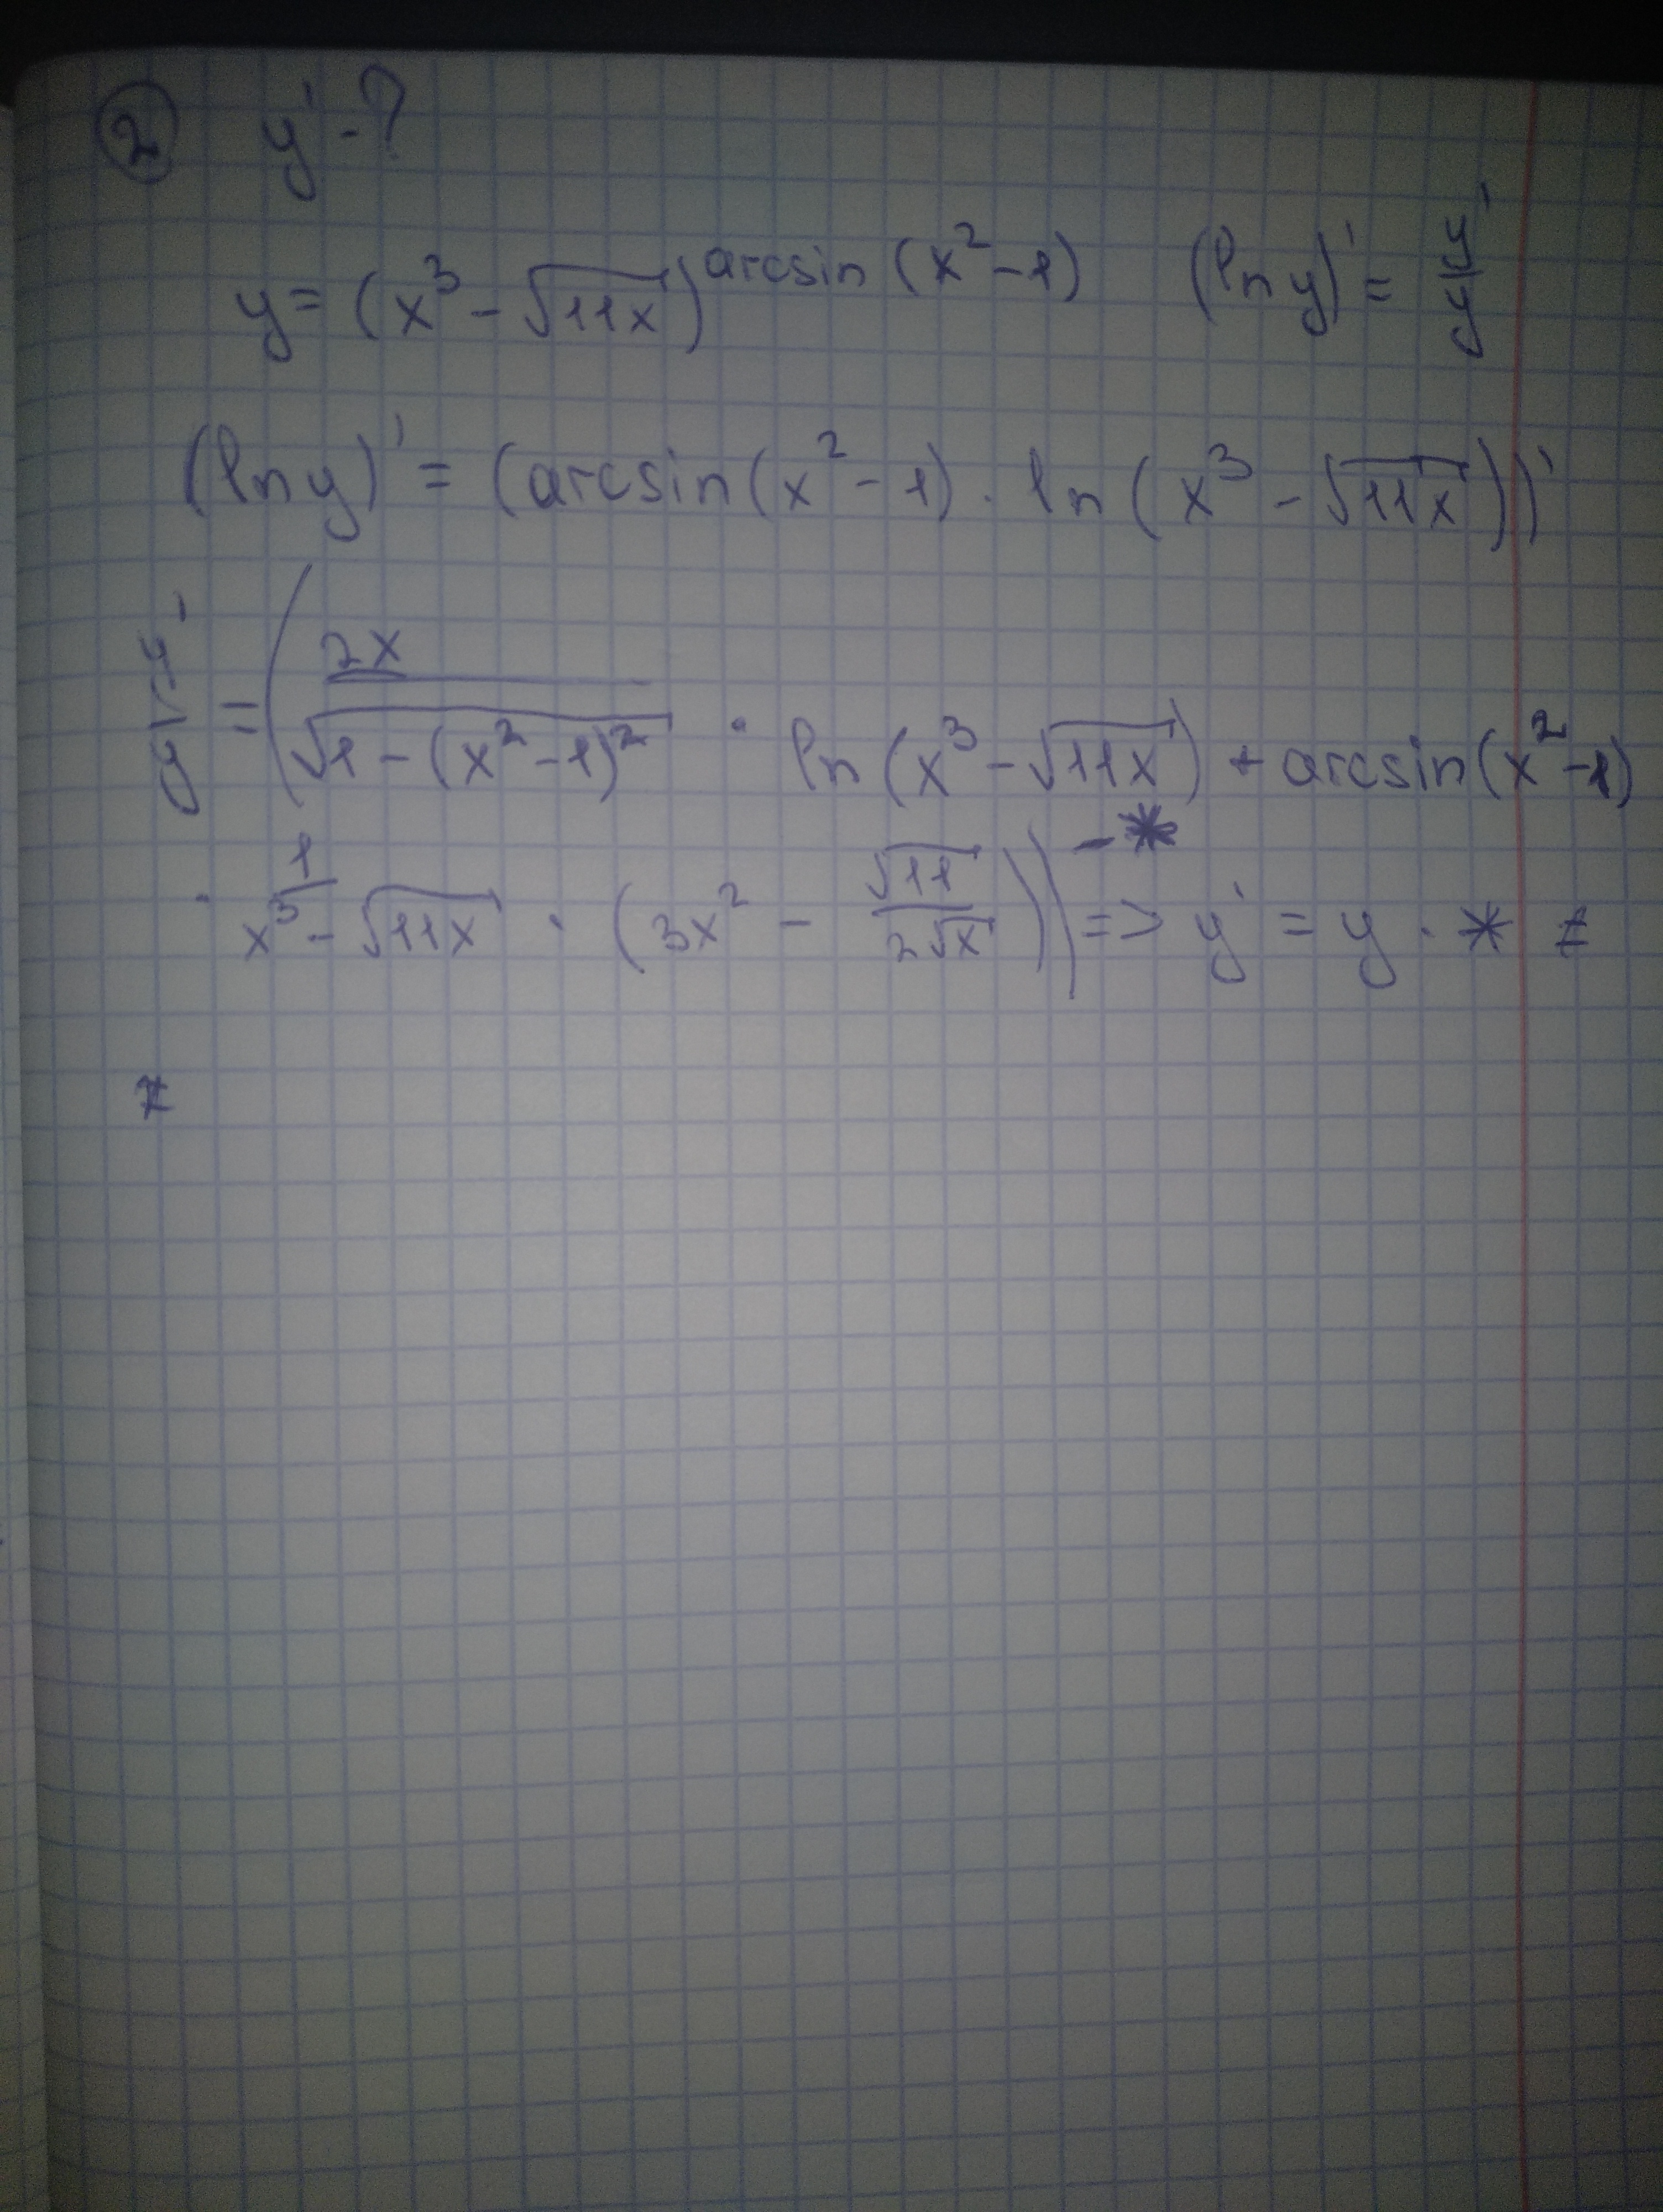 ② y' - ?
y = (x³ - √(11x))^(arcsin (x² - 1)) (ln y)' = y'/y
(ln y)' = (arcsin (x² - 1) · ln (x³ - √(11x)))'
y'/y = (2x/√(1 - (x² - 1)²) · ln (x³ - √(11x)) + arcsin (x² - 1)
· 1/(x³ - √(11x)) · (3x² - √11/(2√x))) - * => y' = y · * =
=